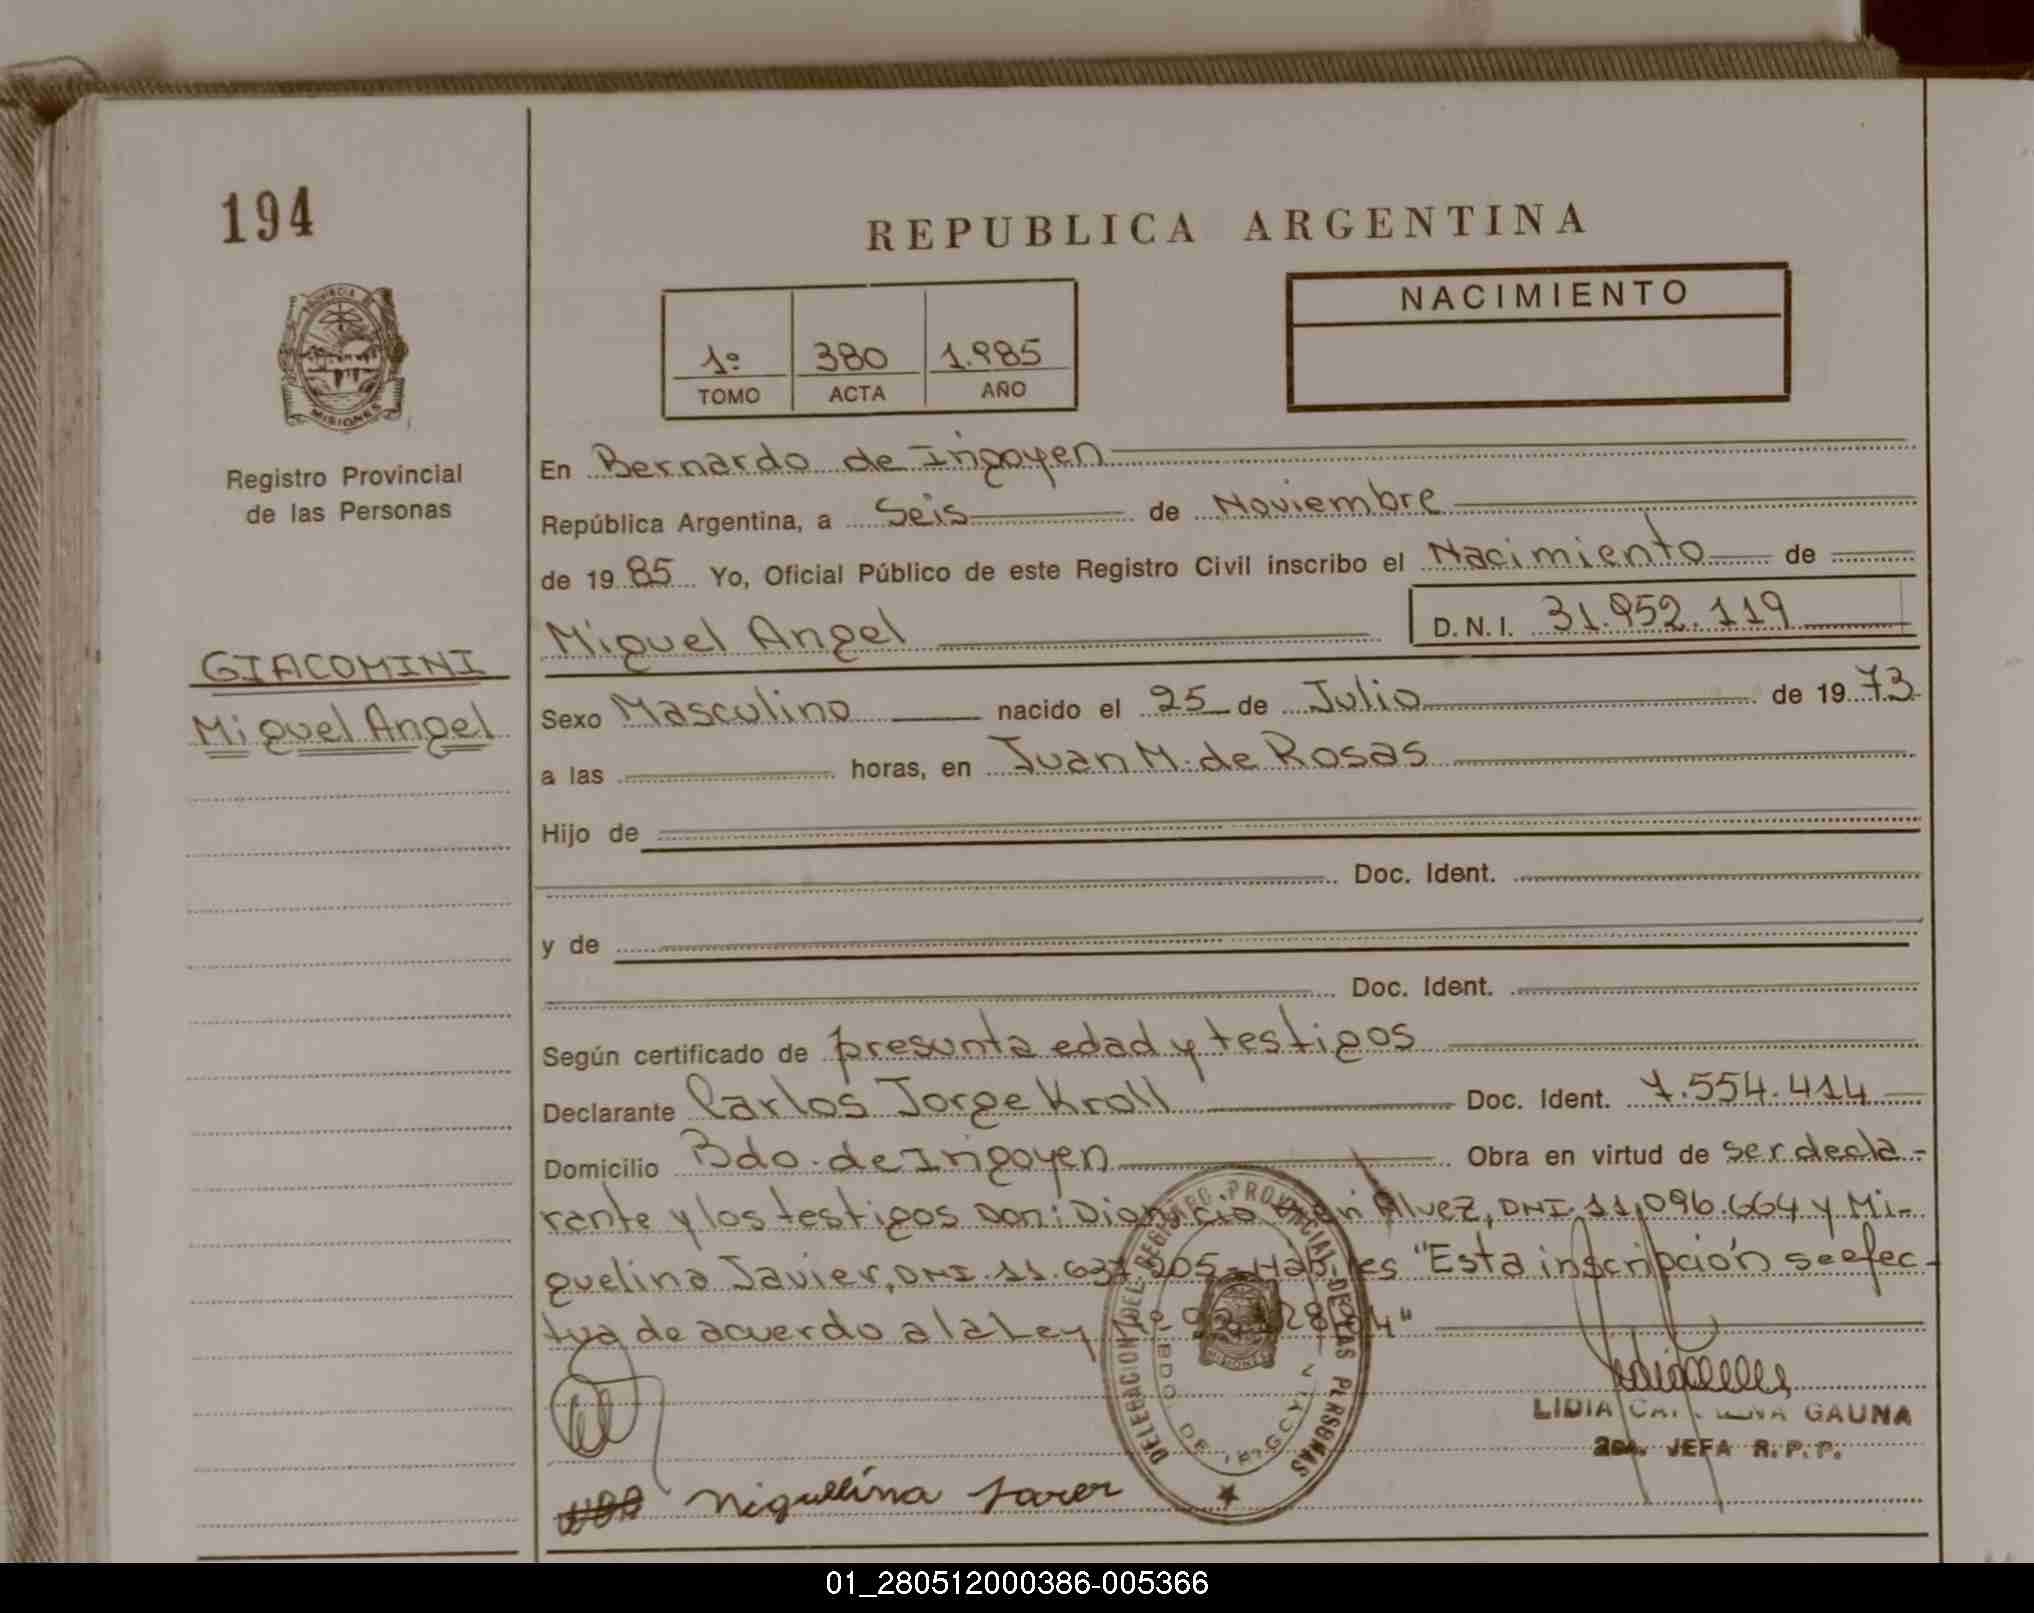 194
REPUBLICA ARGENTINA
PROVINCIA DE
MISIONES
Registro Provincial
de las Personas
1º 380 1.985
TOMO ACTA AÑO
NACIMIENTO
En Bernardo de Irigoyen
República Argentina, a Seis de Noviembre
de 19 85 Yo, Oficial Público de este Registro Civil inscribo el Nacimiento de
Miguel Angel D.N.I. 31.952.119
GIACOMINI
Miguel Angel
Sexo Masculino nacido el 25 de Julio de 19 73
a las horas, en Juan M. de Rosas
Hijo de
Doc. Ident.
y de
Doc. Ident.
Según certificado de presunta edad y testigos
Declarante Carlos Jorge Kroll Doc. Ident. 7.554.414
Domicilio Bdo. de Irigoyen Obra en virtud de ser decla-
rante y los testigos Don: Dionicio Alvez, DNI. 11.096.664 y Mi-
guelina Javier, DNI. 11.637.205-Habiles "Esta inscripción se efec-
tua de acuerdo a la Ley
DELEGACION DEL REGISTRO PROVINCIAL DE LAS PERSONAS
BDO. DE IRIGOYEN
MISIONES
LIDIA GAUNA
2da. JEFA R.P.P.
Miguelina
01_280512000386-005366